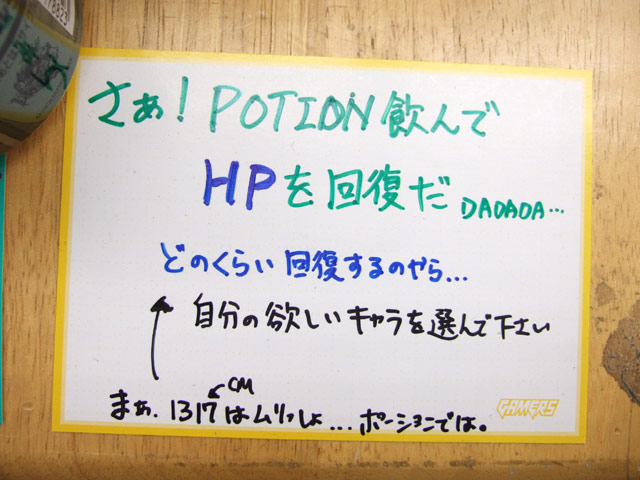 さぁ！POTION飲んで
HPを回復だ DADADA…
どのくらい回復するのやら…
自分の欲しいキャラを選んで下さい
CM
まぁ、1317はムリっしょ…ポーションでは。
GAMERS